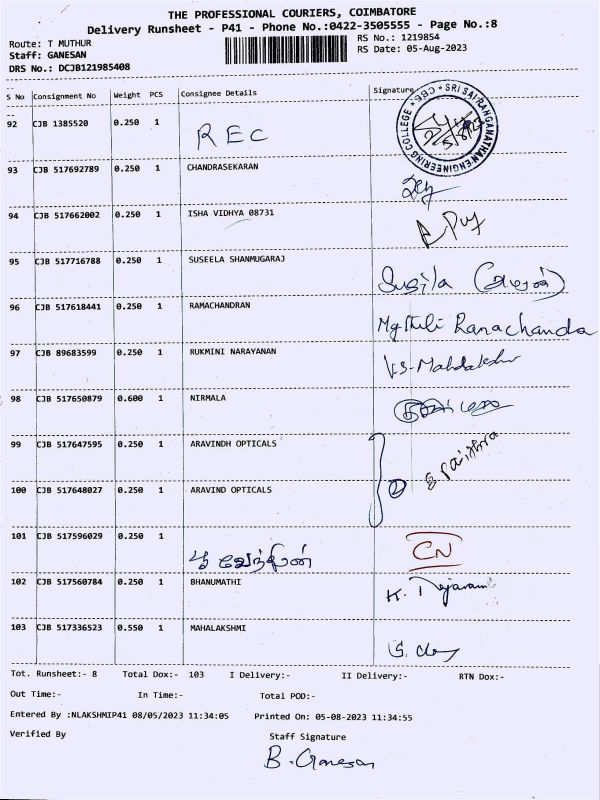 THE PROFESSIONAL COURIERS, COIMBATORE
Delivery Runsheet - P41 - Phone No.:0422-3505555 - Page No.:8
Route: T MUTHUR
RS No.: 1219854
Staff: GANESAN
RS Date: 05-Aug-2023
DRS No.: DCJB121985408
S No Consignment No Weight PCS Consignee Details Signature
SRI SAI RANGANATHAN ENGINEERING COLLEGE
92 CJB 1385520 0.250 1 REC
93 CJB 517692789 0.250 1 CHANDRASEKARAN
94 CJB 517662002 0.250 1 ISHA VIDHYA 08731
95 CJB 517716788 0.250 1 SUSEELA SHANMUGARAJ
96 CJB 517618441 0.250 1 RAMACHANDRAN
97 CJB 89683599 0.250 1 RUKMINI NARAYANAN
98 CJB 517650879 0.600 1 NIRMALA
99 CJB 517647595 0.250 1 ARAVINDH OPTICALS
100 CJB 517648027 0.250 1 ARAVIND OPTICALS 2
101 CJB 517596029 0.250 1 CN
102 CJB 517560784 0.250 1 BHANUMATHI
103 CJB 517336523 0.550 1 MAHALAKSHMI
Tot. Runsheet:- 8 Total Dox:- 103 I Delivery:- II Delivery:- RTN Dox:-
Out Time:- In Time:- Total POD:-
Entered By :NLAKSHMIP41 08/05/2023 11:34:05 Printed On: 05-08-2023 11:34:55
Verified By Staff Signature
B. Ganesan